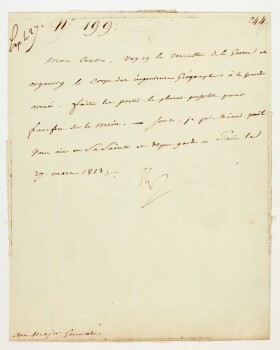 Exp. le 27. N° 199. 244
Mon Cousin, voyez le ministre de la Guerre et
organisez le corps des ingénieurs Géographes à la grande
armée. faites les partir le plus possible pour
francfort sur le Mein. — Sur ce, je prie Dieu qu'il
vous ait en Sa Sainte et digne garde — Paris le
27. mars 1813.
au Major Général.